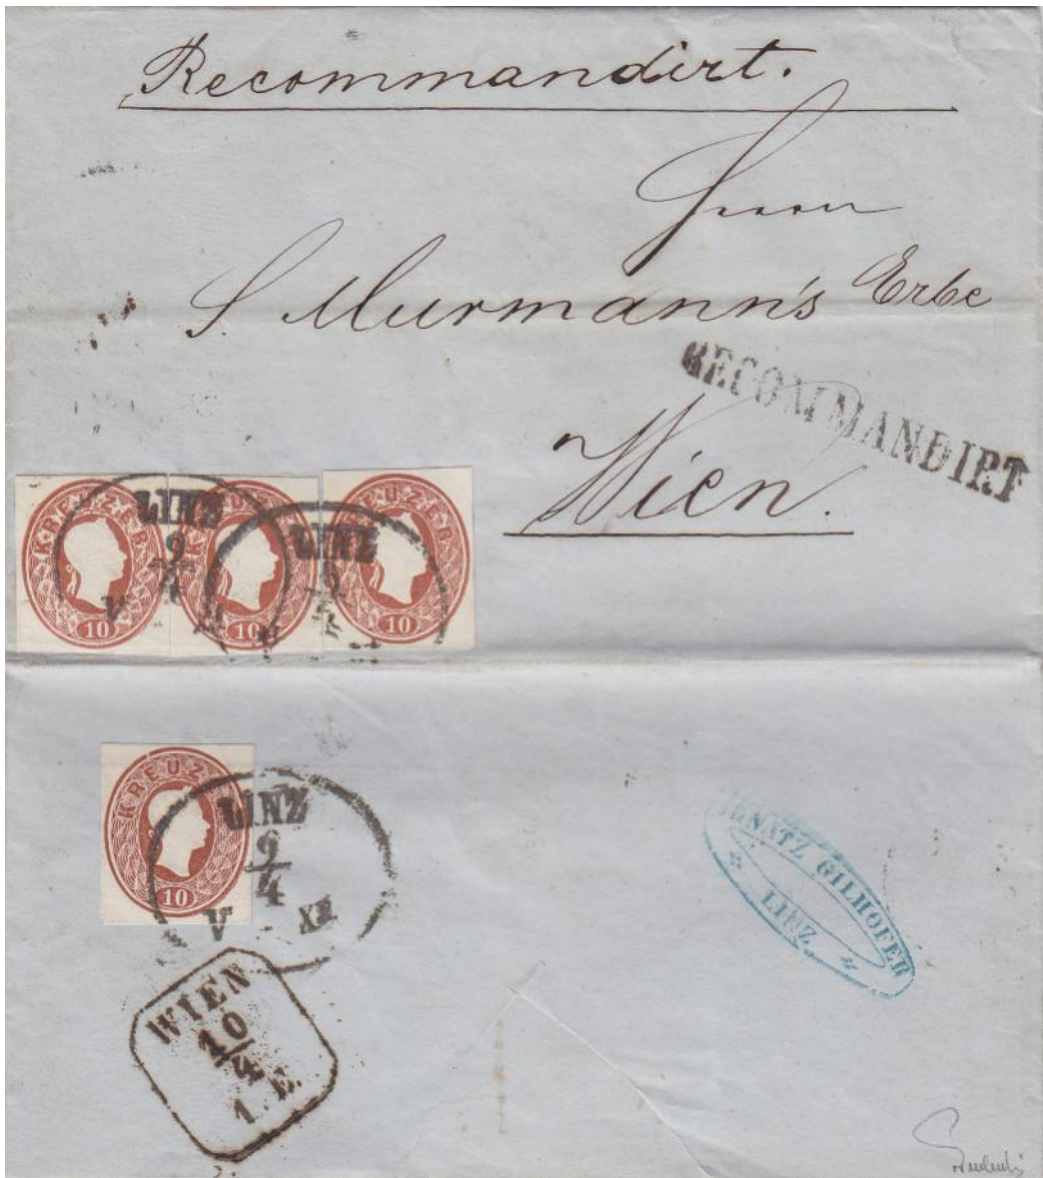 Recommandirt.
Herrn
S Murmann's Erbe
RECOMMANDIRT
Wien.
KREUZER
10
KREUZER
10
KREUZER
10
LINZ
9
4
V
LINZ
KREUZ
10
LINZ
9
4
V XII
IGNATZ GILHOFER
LINZ
WIEN
10
4
1. E.